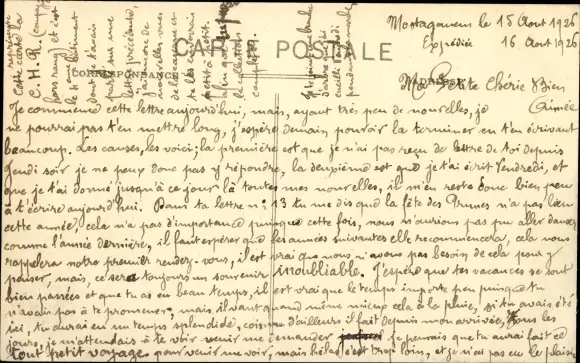 Montagouven le 15 Aout 1926
Expédiée 16 Aout 1926
CARTE POSTALE
CORRESPONDANCE
ADRESSE
Ma Petite Chérie Bien
Aimée
Je commence cette lettre aujourd'hui, mais, ayant très peu de nouvelles, je
ne pourrai pas t'en mettre long, j'espère demain pouvoir la terminer en t'en écrivant
beaucoup. Les causes, les voici; la première est que je n'ai pas reçu de lettre de toi depuis
Jeudi soir je ne peux donc pas y répondre, la deuxième est que je t'ai écrit Vendredi, et
que je t'ai donné jusqu'à ce jour là toutes mes nouvelles, il m'en reste donc bien peu
à t'écrire aujourd'hui. Dans ta lettre n° 13 tu me dis que la fête des Prunes n'a pas lieu
cette année, cela n'a pas d'importance puisque cette fois, nous n'aurions pas pu aller danser
comme l'année dernière, il faut espérer que les années suivantes elle recommencera, cela nous
rappelera notre premier rendez-vous, il est vrai que nous n'avons pas besoin de cela pour y
penser, mais, ce sera toujours un souvenir inoubliable. J'espère que tes vacances se sont
bien passées et que tu as eu beau temps, il est vrai que le temps importe peu puisque tu
n'avais pas à te promener, mais, il vaut quand même mieux cela à la pluie, si tu avais été
ici, tu aurais eu un temps splendide, comme d'ailleurs il fait depuis mon arrivée, Tous les
jours, je m'attendais à te voir venir me demander je pensais que tu aurai fait ce
tout petit voyage pour venir me voir, mais hélas c'est trop loin, et, je n'ai pas eu le plaisir
Cette carte la
C.H.R. (
hors rang) et c'est
le bâtiment
dont je t'avais
parlé sur une
lettre précédente,